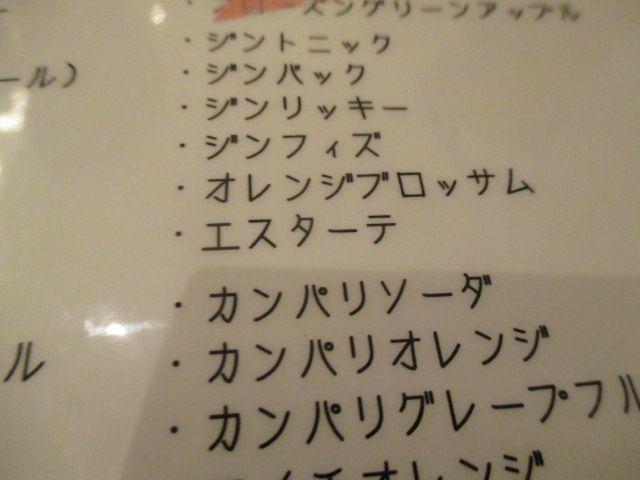 ズングリーンアップル
・ジントニック
ール)
・ジンバック
・ジンリッキー
・ジンフィズ
・オレンジブロッサム
・エスターテ
・カンパリソーダ
ル
・カンパリオレンジ
・カンパリグレープフル
オレンジ